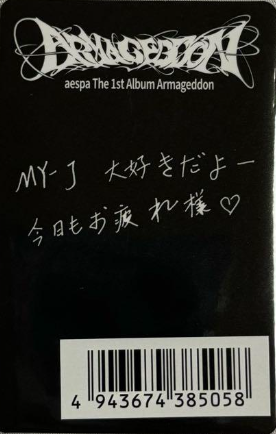 ARMAGEDDON
aespa The 1st Album Armageddon
MY-J 大好きだよー
今日もお疲れ様♡
4 943674 385058